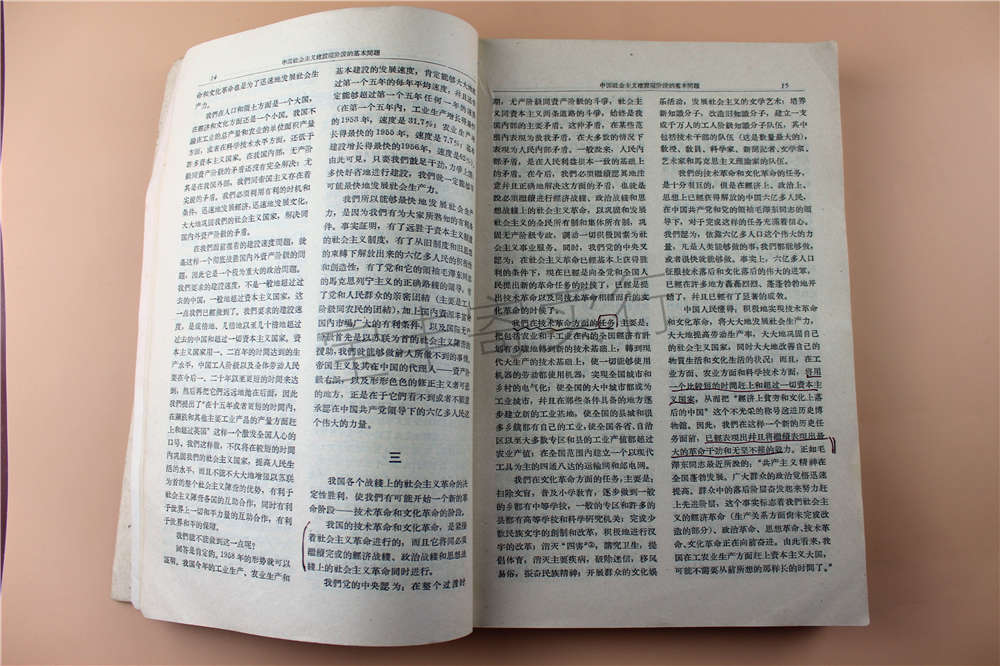 14
中国社会主义建設現阶段的基本問題
命和文化革命也是为了迅速地发展社会生
产力。
我們在人口和領土方面是一个大国，
在經济和文化方面还是一个小国。我国不
論在工业的总产量和农业的单位面积产量
方面，或者在科学技术水平方面，还低于
許多資本主义国家。在我国內部，无产阶
級和資产阶級的矛盾还沒有完全解决；尤
其是在我国外部，我們同帝国主义存在着
尖銳的矛盾。我們必須利用有利的时机和
条件，迅速地发展經济，迅速地发展文化，
大大地巩固我們的社会主义国家，解决同
国內外资产阶級的矛盾。
在我們面前摆着的建設速度問題，就
象这样一个彻底战胜国內外資产阶級的問
題，因此它是一个极为重大的政治問題。
我們要求的建設速度，不是一般地超过过
去的中国，一般地超过資本主义国家。这
一点我們已經做到了。我們要求的建設速
度，是成倍地、几倍地以至几十倍地超过
过去的中国和超过一切資本主义国家。資
本主义国家用一、二百年的时間达到的生
产水平，中国工人阶級以及全体劳动人民
要在今后一、二十年以至更短的时間来达
到，然后再把它們远远地抛在后面，因此
我們提出了“在十五年或者更短的时間內，
在鋼鉄和其他主要工业产品的产量方面赶
上和超过英国”这样一个激发全国人心的
口号。我們这样做，不仅将在較短的时間
內巩固我們的社会主义国家，提高人民生
活的水平，而且不能不大大地增强以苏联
为首的整个社会主义陣营的优势，有利于
社会主义陣营各国的互助合作，同时有利
于世界上一切和平力量的互助合作，有利
于世界和平的保障。
我們能不能做到这一点呢？
回答是肯定的。1958年的形势就可以
証明。我国今年的工业生产、农业生产和
基本建設的发展速度，肯定能够大大地
超过第一个五年的每年平均速度，并且
定能够超过第一个五年任何一年的速度
（在第一个五年內，工业生产增长得最快
的1953年，速度是31.7%；农业生产增
长得最快的1955年，速度是7.7%；基本
建設增长得最快的1956年，速度是62%）。
由此可見，只要我們鼓足干劲，力爭上游，
多快好省地进行建設，我們就一定能够尽
可能最快地发展社会生产力。
我們所以能够最快地发展社会生产
力，是因为我們有为大家所熟知的有利条
件。事实証明，有了远胜于資本主义制度
的社会主义制度，有了从旧制度和旧思想
的束縛下解放出来的六亿多人民的积极性
和創造性，有了党和它的領袖毛澤东同志
的馬克思列宁主义的正确路綫的領导，有
了党和人民群众的亲密团結（主要是工人
阶級同农民的团結），加上国內資源丰富、
国內市場广大的有利条件，以及国际无产
阶級首先是以苏联为首的社会主义陣营的
援助，我們就能够做前人所做不到的事情。
帝国主义及其在中国的代理人——資产阶
級右派，以及形形色色的修正主义者可悲
的地方，正是在于它們看不到或者不願意
承認在中国共产党領导下的六亿多人民这
个伟大的力量。
三
我国各个战綫上的社会主义革命的决
定性胜利，使我們有可能开始一个新的革
命阶段——技术革命和文化革命的阶段。
我国的技术革命和文化革命，是紧接
着社会主义革命进行的，而且它将同必須
繼續完成的經济战綫、政治战綫和思想战
綫上的社会主义革命同时进行。
我們党的中央認为：在整个过渡时
中国社会主义建設現阶段的基本問題
15
期，无产阶級同資产阶級的斗爭，社会主
义同資本主义两条道路的斗爭，始終是我
国內部的主要矛盾。这种矛盾，在某些范
围內表現为敌我矛盾，在大多数的情况下
表現为人民內部矛盾。一般說来，人民內
部矛盾，是在人民利益根本一致的基础上
的矛盾。在今后，我們必須繼續恩其地注
意并且正确地解决这方面的矛盾，也就是
說必須繼續进行經济战綫、政治战綫和思
想战綫上的社会主义革命，以巩固和发展
社会主义的全民所有制和集体所有制，巩
固无产阶級专政，調动一切积极因素为社
会主义事业服务。同时，我們党的中央又
認为：在社会主义革命已經基本上获得胜
利的条件下，現在已經是向全党和全国人
民提出新的革命任务的时候了，已經是提
出技术革命以及同技术革命相輔而行的文
化革命的时候了。
我們在技术革命方面的任务，主要是：
把包括农业和手工业在內的全国經济有計
划有步驟地轉到新的技术基础上，轉到現
代大生产的技术基础上，使一切能够使用
机器的劳动都使用机器，实現全国城市和
乡村的电气化；使全国的大中城市都成为
工业城市，并且在那些条件具备的地方逐
步建立新的工业基地，使全国的县城和很
多乡鎮都有自己的工业；使全国各省、自治
区以至大多数专区和县的工业产值都超过
农业产值；在全国范围內建立一个以現代
工具为主的四通八达的运輸网和邮电网。
我們在文化革命方面的任务，主要是：
扫除文盲，普及小学教育，逐步做到一般
的乡都有中等学校，一般的专区和許多的
县都有高等学校和科学研究机关；完成少
数民族文字的創制和改革，积极地进行汉
字的改革；消灭“四害”，讲究卫生，提
倡体育，消灭主要疾病，破除迷信，移风
易俗，振奋民族精神；开展群众的文化娛
乐活动，发展社会主义的文学艺术；培养
新知識分子，改造旧知識分子，建立一支
成千万人的工人阶級知識分子队伍，其中
包括技术干部的队伍（这是数量最大的），
教授、教員、科学家、新聞記者、文学家、
艺术家和馬克思主义理論家的队伍。
我們的技术革命和文化革命的任务，
是十分艰巨的，但是在經济上、政治上、
思想上已經获得解放的中国六亿多人民，
在中国共产党和党的領袖毛澤东同志的領
导下，对于完成这样的任务充滿着信心。
我們認为，依靠六亿多人口这个伟大的力
量，凡是人类能够做的事，我們都能够做，
或者很快就能够做。事实上，六亿多人口
征服技术落后和文化落后的伟大的进军，
已經在許多地方轟轟烈烈、蓬蓬勃勃地开
了，并且已經有了显著的成效。
中国人民懂得，积极地实現技术革命
和文化革命，将大大地发展社会生产力，
大大地提高劳动生产率，大大地巩固自己
的社会主义国家，同时大大地改善自己的
物質生活和文化生活的状况；而且，在工
业方面、农业方面、科学文化方面，将用
一个比較短的时間赶上和超过一切資本主
义国家，从而把“經济上貧穷和文化上落
后的中国”这个不光采的称号送进历史博
物館。因此，我們在这样一个新的历史任
务面前，已經表現出并且将繼續表現出最
大的革命干劲和无坚不摧的毅力。正如毛
澤东同志最近所說的：“共产主义精神在
全国蓬勃发展。广大群众的政治觉悟迅速
提高。群众中的落后阶层奋发起来努力赶
上先进阶层，这个事实标志着我国社会主
义的經济革命（生产关系方面尚未完成改
造的部分）、政治革命、思想革命、技术革
命、文化革命正在向前奋进。由此看来，我
国在工农业生产方面赶上資本主义大国，
可能不需要从前所想的那样长的时間了。”